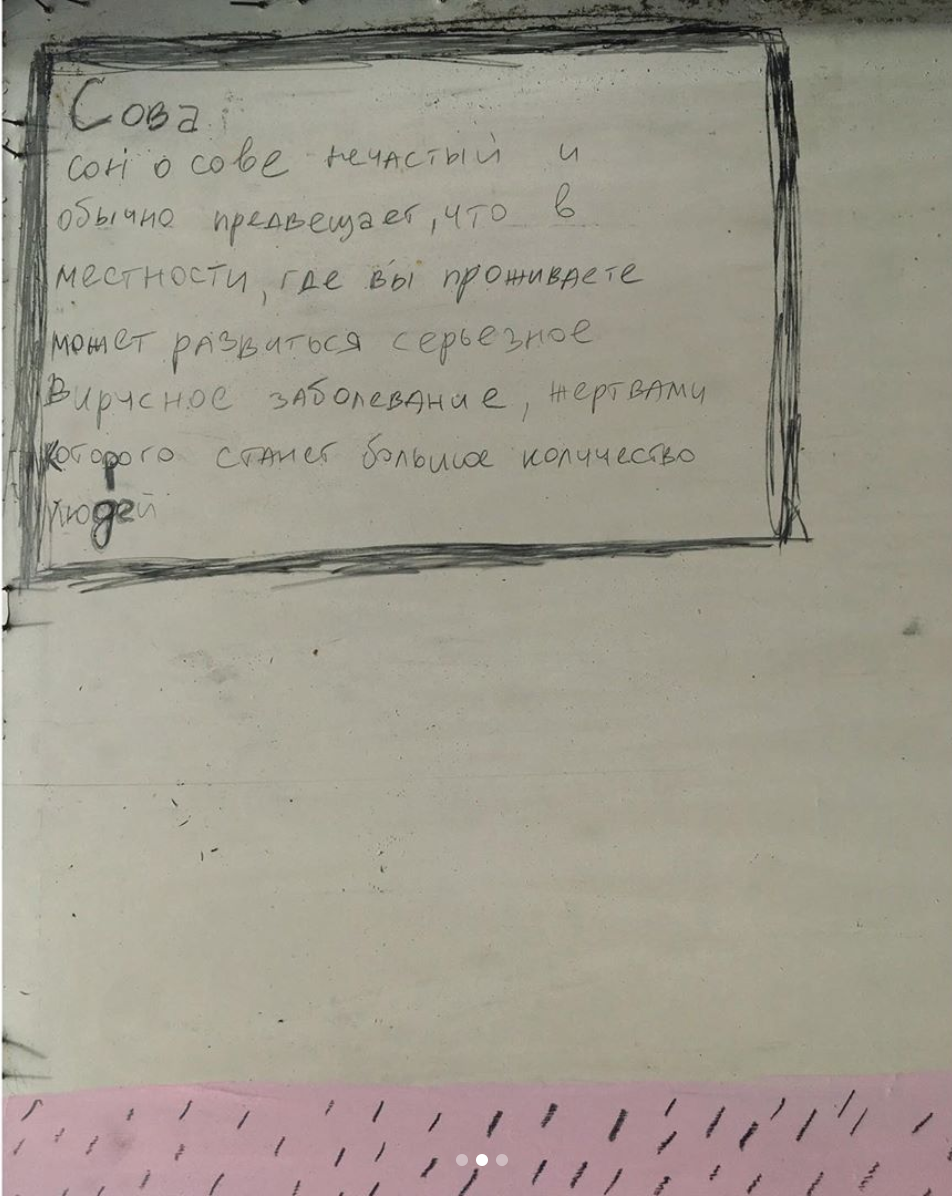 Сова
сон о сове нечастый и
обычно предвещает, что в
местности, где вы проживаете
может развиться серьезное
Вирусное заболевание, жертвами
которого станет большое количество
людей